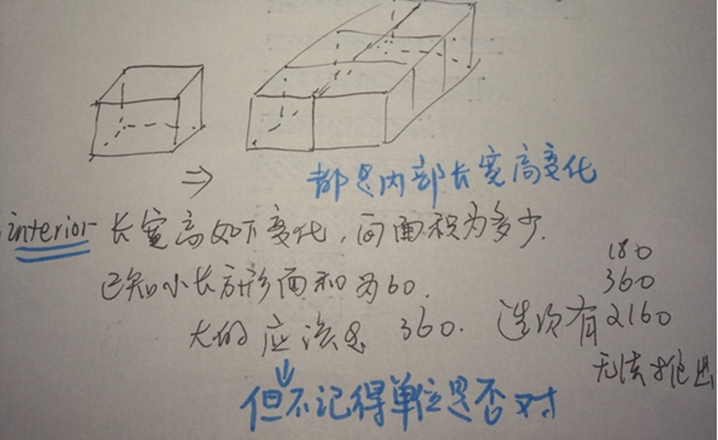 都是内部长宽高变化
interior 长宽高如下变化,问面积为多少.
已知小长方形面和为60.
大的应该是 360. 选项有
180
360
2160
无法推出
但不记得单位是否对